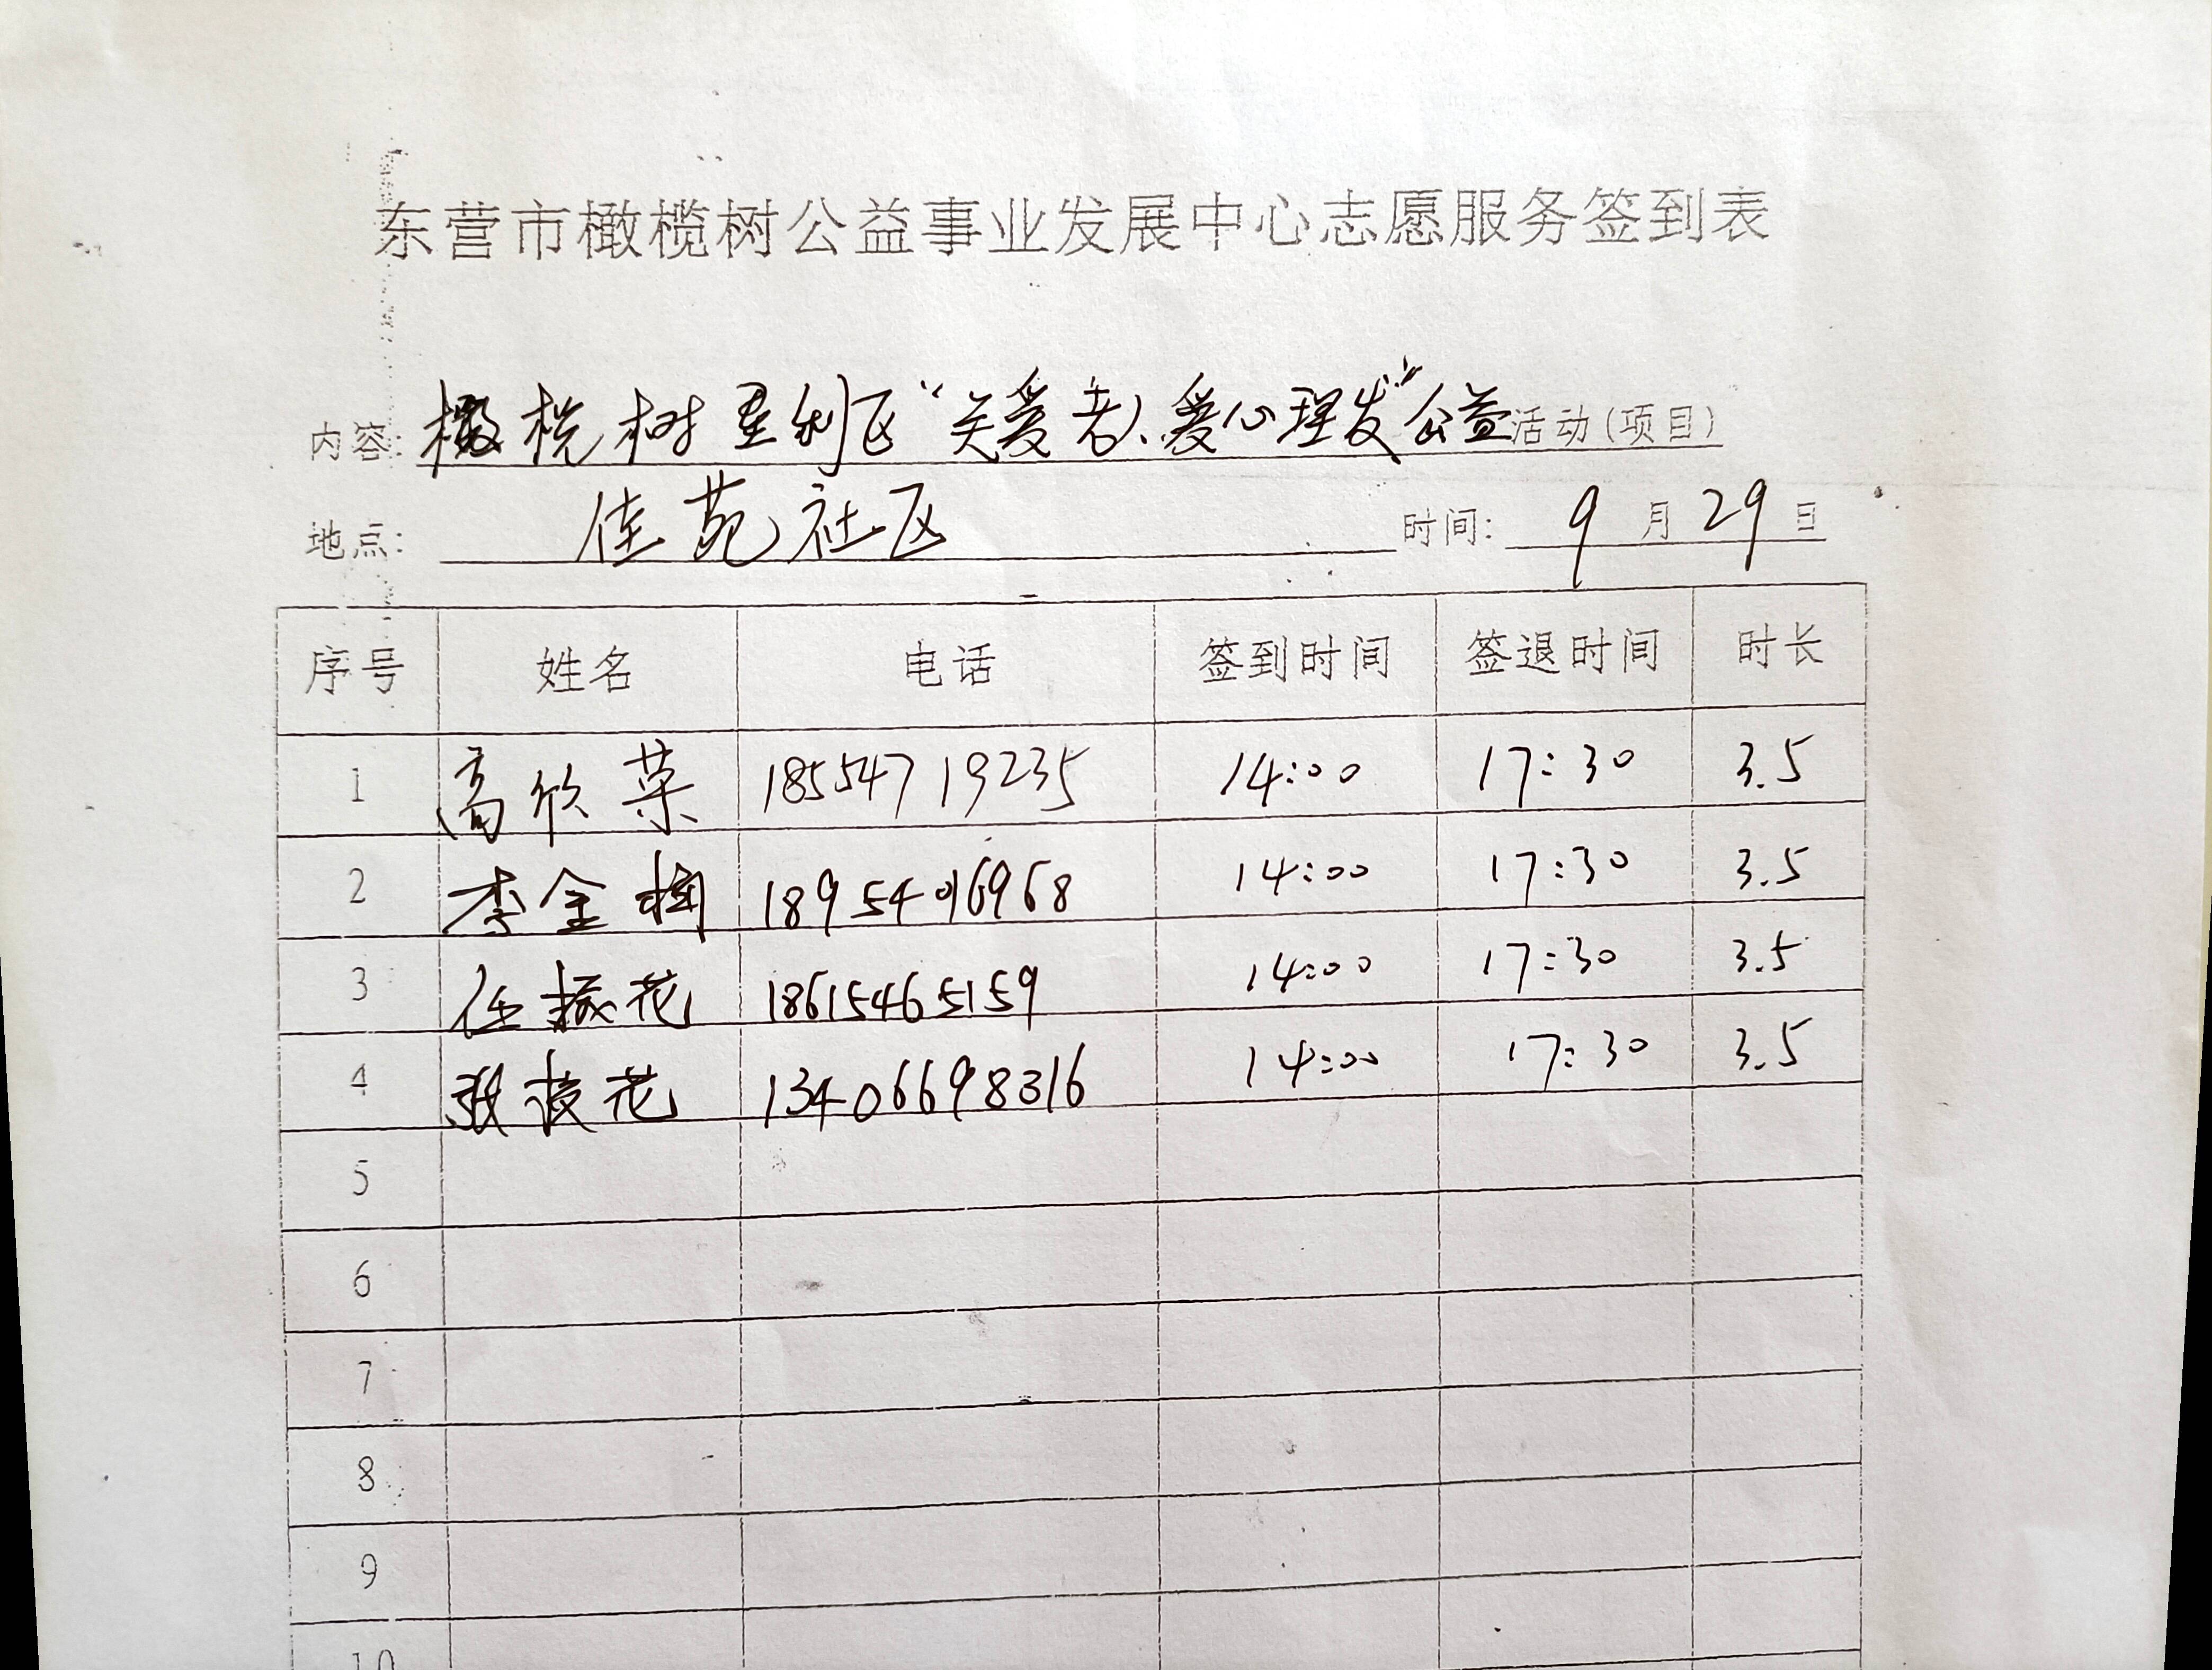 东营市橄榄树公益事业发展中心志愿服务签到表
内容: 橄榄树垦利区“关爱老人、爱心理发”公益活动(项目)
地点: 佳苑社区 时间: 9月29日
序号 姓名 电话 签到时间 签退时间 时长
1 高欣菜 18554719235 14:00 17:30 3.5
2 李金梅 18954016968 14:00 17:30 3.5
3 任振花 18615465159 14:00 17:30 3.5
4 花 13406698316 14:00 17:30 3.5
5
6
7
8
9
10